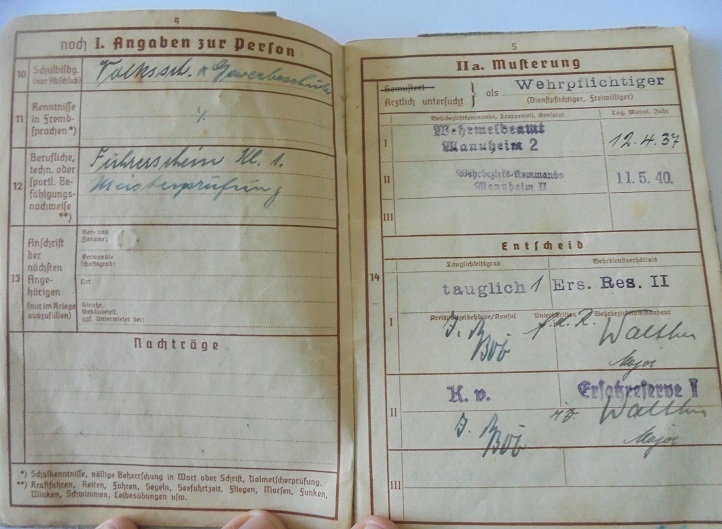 noch I. Angaben zur Person
10 Schulbildg. (nur Abschluß)
Volkssch. u Gewerbeschule
11 Kenntnisse in Fremdsprachen *)
./.
12 Berufliche, techn. oder sportl. Befähigungsnachweise **)
Führerschein Kl. 1.
Meisterprüfung
13 Anschrift der nächsten Angehörigen (nur im Kriege auszufüllen)
Vor- und Zuname:
Verwandtschaftsgrad:
Ort
Straße, Gebäudeteil, ggf. Untermieter bei:
Nachträge
*) Schulkenntnisse, völlige Beherrschung in Wort oder Schrift, Dolmetscherprüfung.
**) Kraftfahren, Reiten, Fahren, Segeln, Seefahrtzeit, Fliegen, Morsen, Funken,
Winken, Schwimmen, Leibesübungen usw.
5
IIa. Musterung
Gemustert
Ärztlich untersucht
als Wehrpflichtiger
(Dienstpflichtiger, Freiwilliger)
Tag, Monat, Jahr
I
Wehrmeldeamt
Mannheim 2
12.4.37
II
Wehrbezirks-Kommando
Mannheim II
11.5.40.
III
Entscheid
14
Tauglichkeitsgrad
Wehrdienstverhältnis
tauglich 1
Ers. Res. II
I
f.d.R.
Walther
Major
II
K. v.
Ersatzreserve I
Walther
Major
III